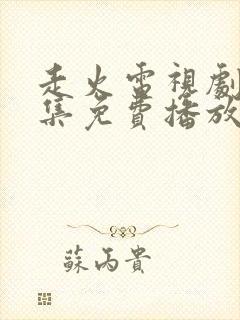 走火電視劇
集免費播放
蘇丙貴